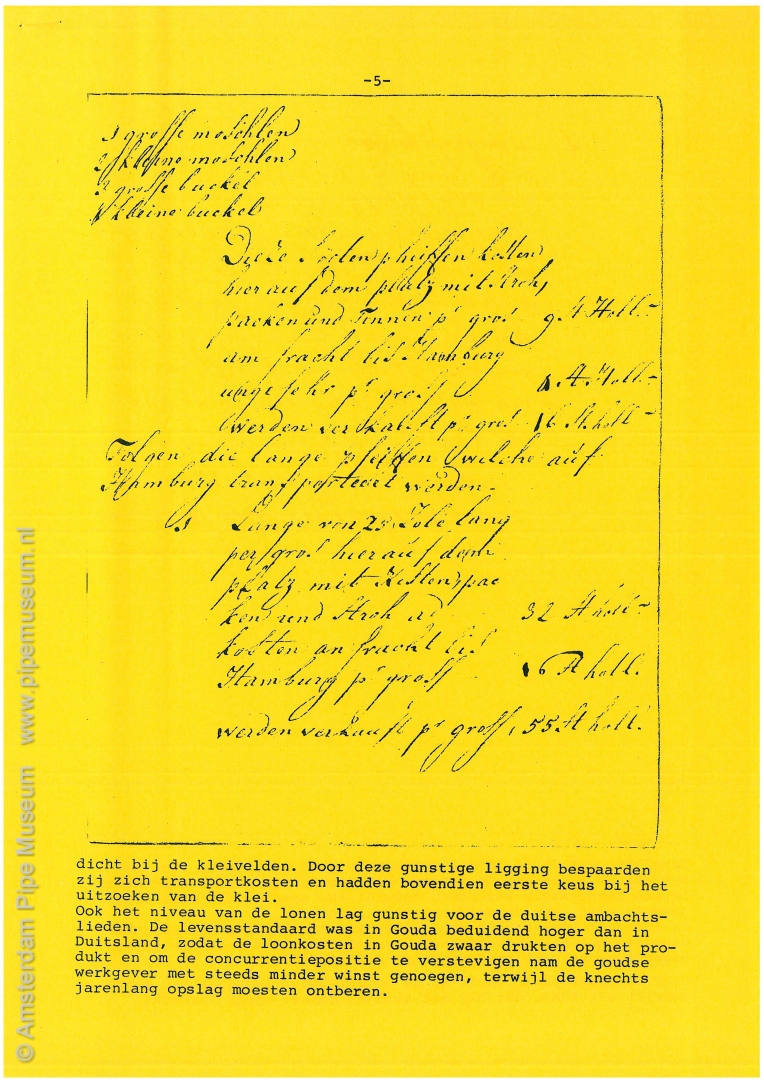 -5-
1 grosse moschlen
2 kleine moschlen
3 grosse buckel
4 kleine buckel
Diese Sorten pheiffen kosten
hier auf dem platz mit Stroh,
packen und Tinnen pr gros 9 St Holl.
am fracht bis Hamburg
ungefehr pr gross St Holl.
werden verkauft pr gros 16 St. holl
Folgen die lange pfeiffen welche auf
Hamburg transportevet werden.
1 Lange von 23 Zole lang
per gros hier auf dem
platz mit Kisten, pac
ken und Stroh ad 32 St holl
kosten an fracht bis
Hamburg pr gross 16 St holl.
werden verkauft pr gross, 55 St holl.
dicht bij de kleivelden. Door deze gunstige ligging bespaarden
zij zich transportkosten en hadden bovendien eerste keus bij het
uitzoeken van de klei.
Ook het niveau van de lonen lag gunstig voor de duitse ambachts-
lieden. De levensstandaard was in Gouda beduidend hoger dan in
Duitsland, zodat de loonkosten in Gouda zwaar drukten op het pro-
dukt en om de concurrentiepositie te verstevigen nam de goudse
werkgever met steeds minder winst genoegen, terwijl de knechts
jarenlang opslag moesten ontberen.
© Amsterdam Pipe Museum www.pipemuseum.nl